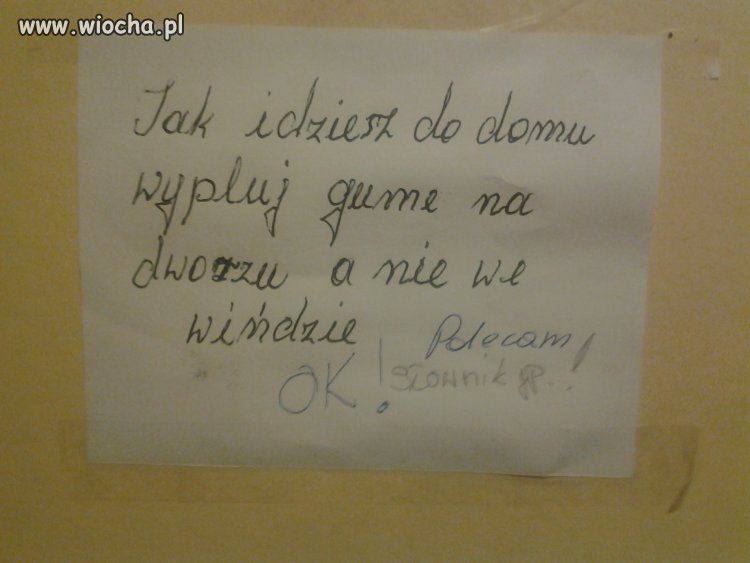 www.wiocha.pl
Jak idziesz do domu
wypluj gume na
dworzu a nie we
wińdzie
Polecam
OK! słownik jp.!